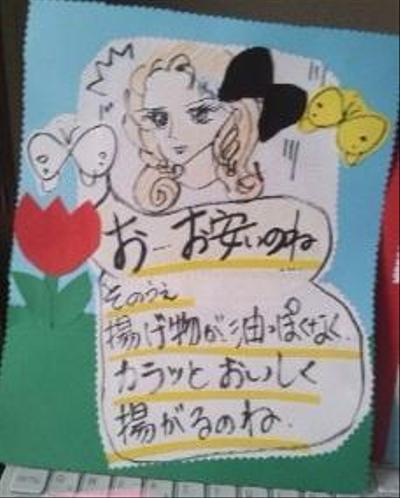 お…お安いのね
そのうえ
揚げ物が油っぽくなく
カラッとおいしく
揚がるのね.